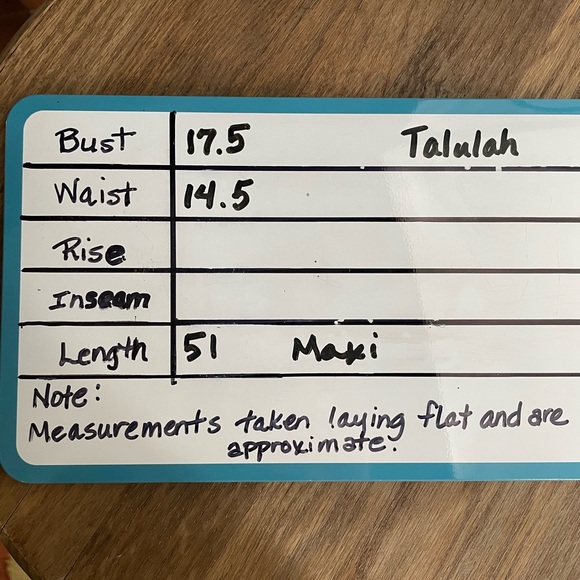 Bust 17.5 Talulah
Waist 14.5
Rise
Inseam
Length 51 Maxi
Note:
Measurements taken laying flat and are
approximate.